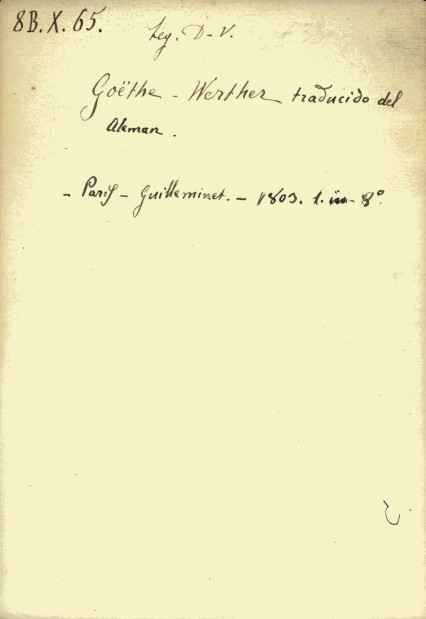 8B.X.65.
Leg. D-V.
Goëthe - Werther traducido del
Aleman.
- Paris - Guilleminet. - 1803. 1. in- 8º.